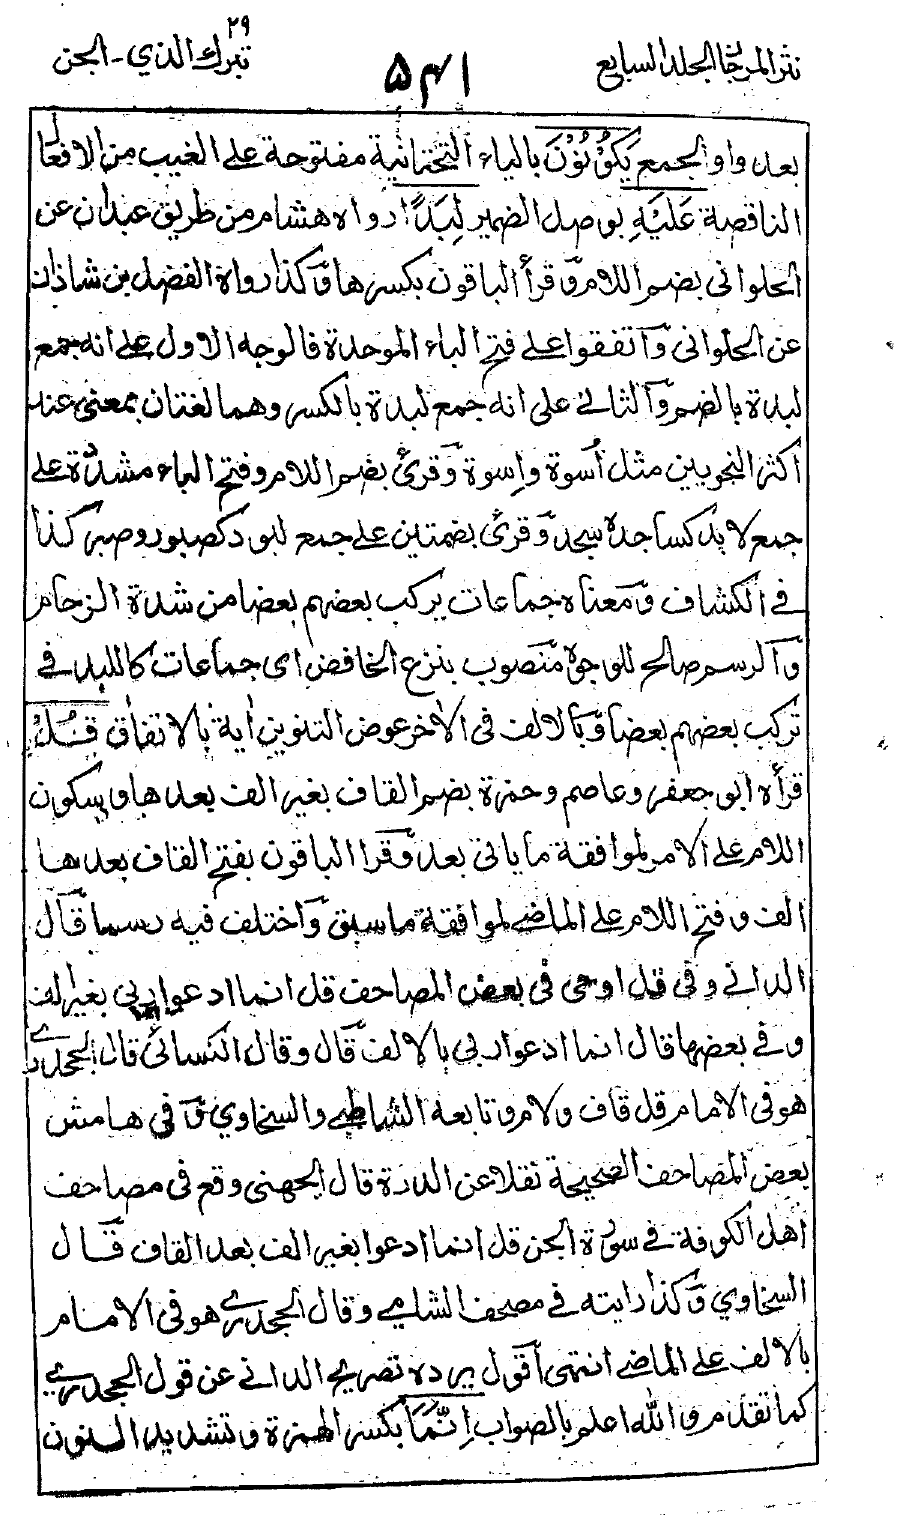 ٢٩
نثر المرجان المجلد السابع
٥٤١
تبرك الذي - الجن
بعد واو الجمع يَكُوْنُوْنَ بالياء التحتانية مفتوحة على الغيب من الافعال
الناقصة عَلَيْهِ بوصل الضمير لِبَدًا رواه هشام من طريق عبدان عن
الحلواني بضم اللام وقرأ الباقون بكسرها وكذا رواه الفضل بن شاذان
عن الحلواني واتفقوا على فتح الباء الموحدة فالوجه الاول على انه جمع
لبدة بالضم والثاني على انه جمع لبدة بالكسر وهما لغتان بمعنى عند
اكثر النحويين مثل أسوة وإسوة وقرئ بضم اللام وفتح الباء مشددة على
جمع لابد كساجد وسجد وقرئ بضمتين على جمع لبود كصبور وصبر كذا
في الكشاف ومعناه جماعات يركب بعضهم بعضا من شدة الزحام
والرسم صالح للوجوه منصوب بنزع الخافض اى جماعات كاللبد في
تركب بعضهم بعضا وبالالف في الآخر عوض التنوين أية بالاتفاق قُلْ
قرأه ابو جعفر وعاصم وحمزة بضم القاف بغير الف بعدها وسكون
اللام على الامر لموافقة ما ياتى بعد وقرا الباقون بفتح القاف بعدها
الف وفتح اللام على الماضي لموافقة ما سبق واختلف فيه رسما قال
الداني وفي قل اوحى في بعض المصاحف قل انما ادعوا ربى بغير الف
وفي بعضها قال انما ادعوا ربى بالالف قال وقال الكسائى قال الجحدرى
هو في الامام قل قاف ولام وتابعه الشاطبي والسخاوي وفي هامش
بعض المصاحف الصحيحة نقلا عن الدرة قال الجهنى وقع في مصاحف
اهل الكوفة في سورة الجن قل انما ادعوا بغير الف بعد القاف قال
السخاوي وكذا رايته في مصحف الشامي وقال الجحدري هو في الامام
بالالف على الماضي انتهى أقول يرده تصريح الداني عن قول الجحدري
كما تقدم والله اعلم بالصواب إنَّمَا بكسر الهمزة وتشديد النون